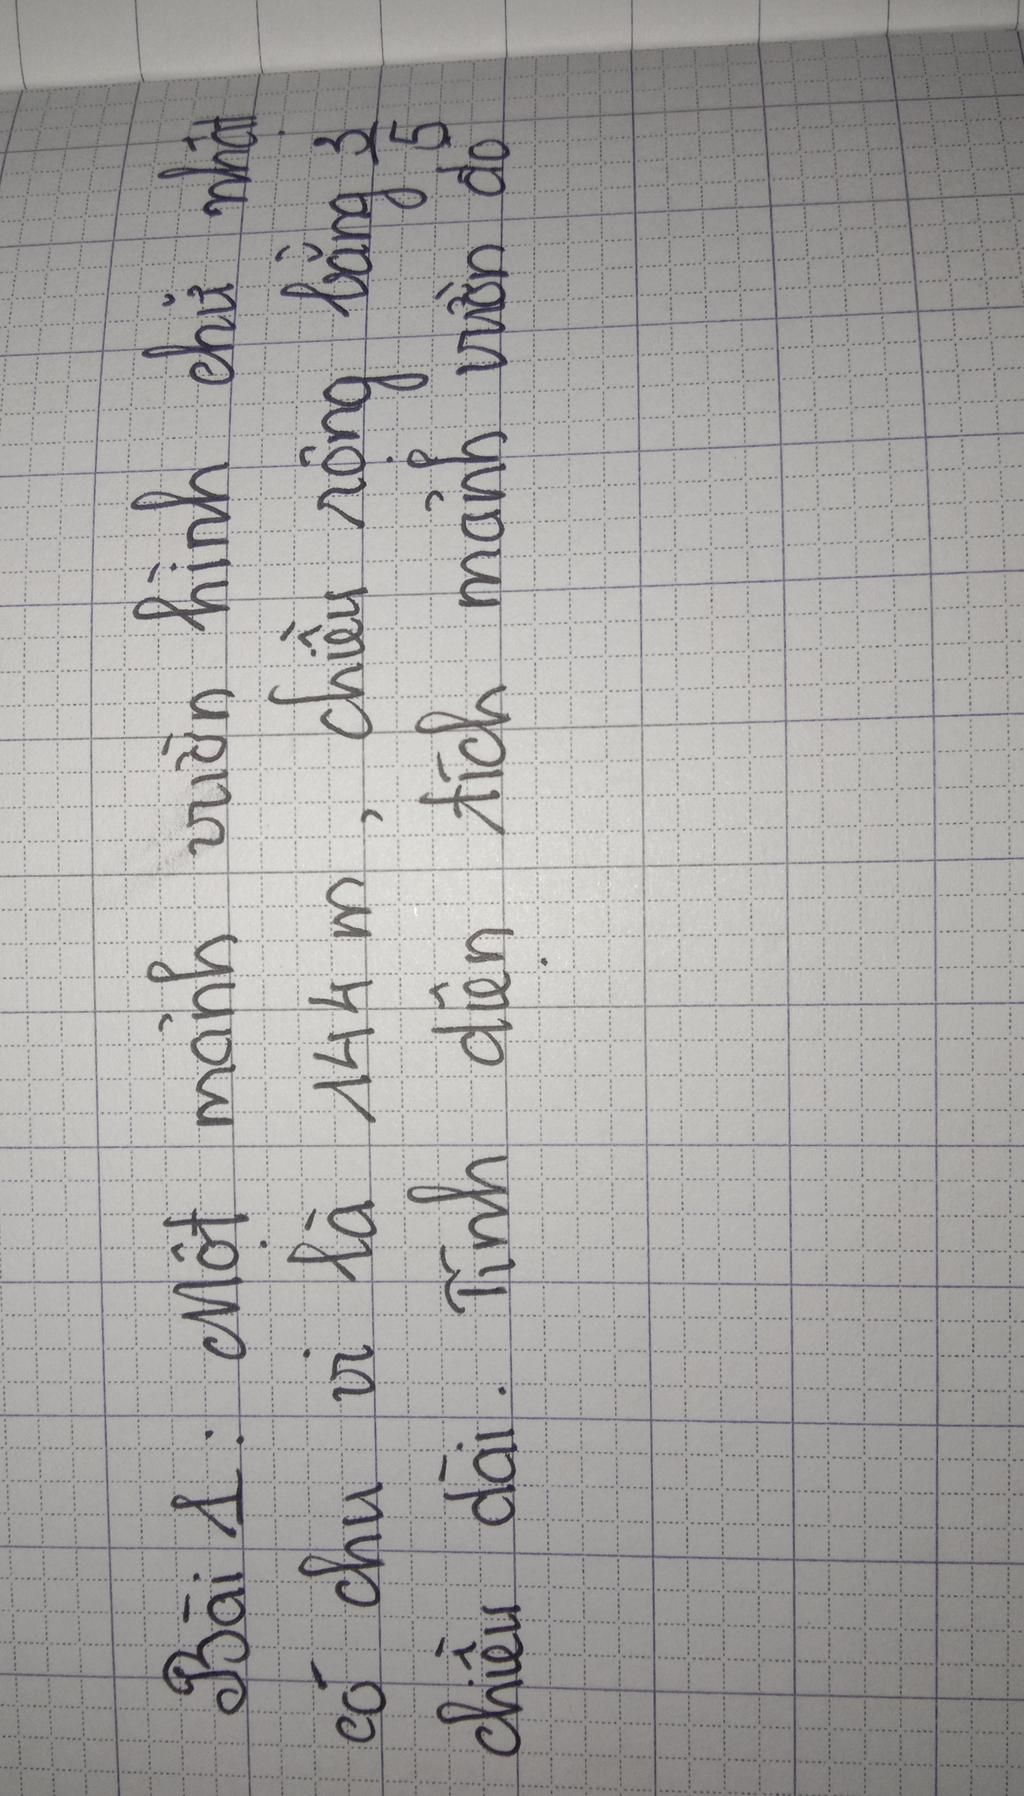 Bài 1: Một mảnh vườn hình chữ nhật
có chu vi là 144 m, chiều rộng bằng 3/5
chiều dài. Tính diện tích mảnh vườn đo